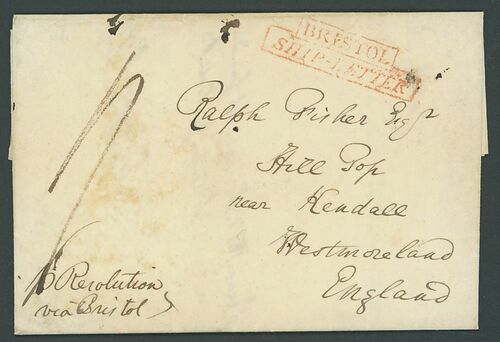 BRISTOL
SHIP-LETTER
Ralph Fisher Esqr
Hill Top
near Kendall
Westmoreland
England
p Resolution
via Bristol